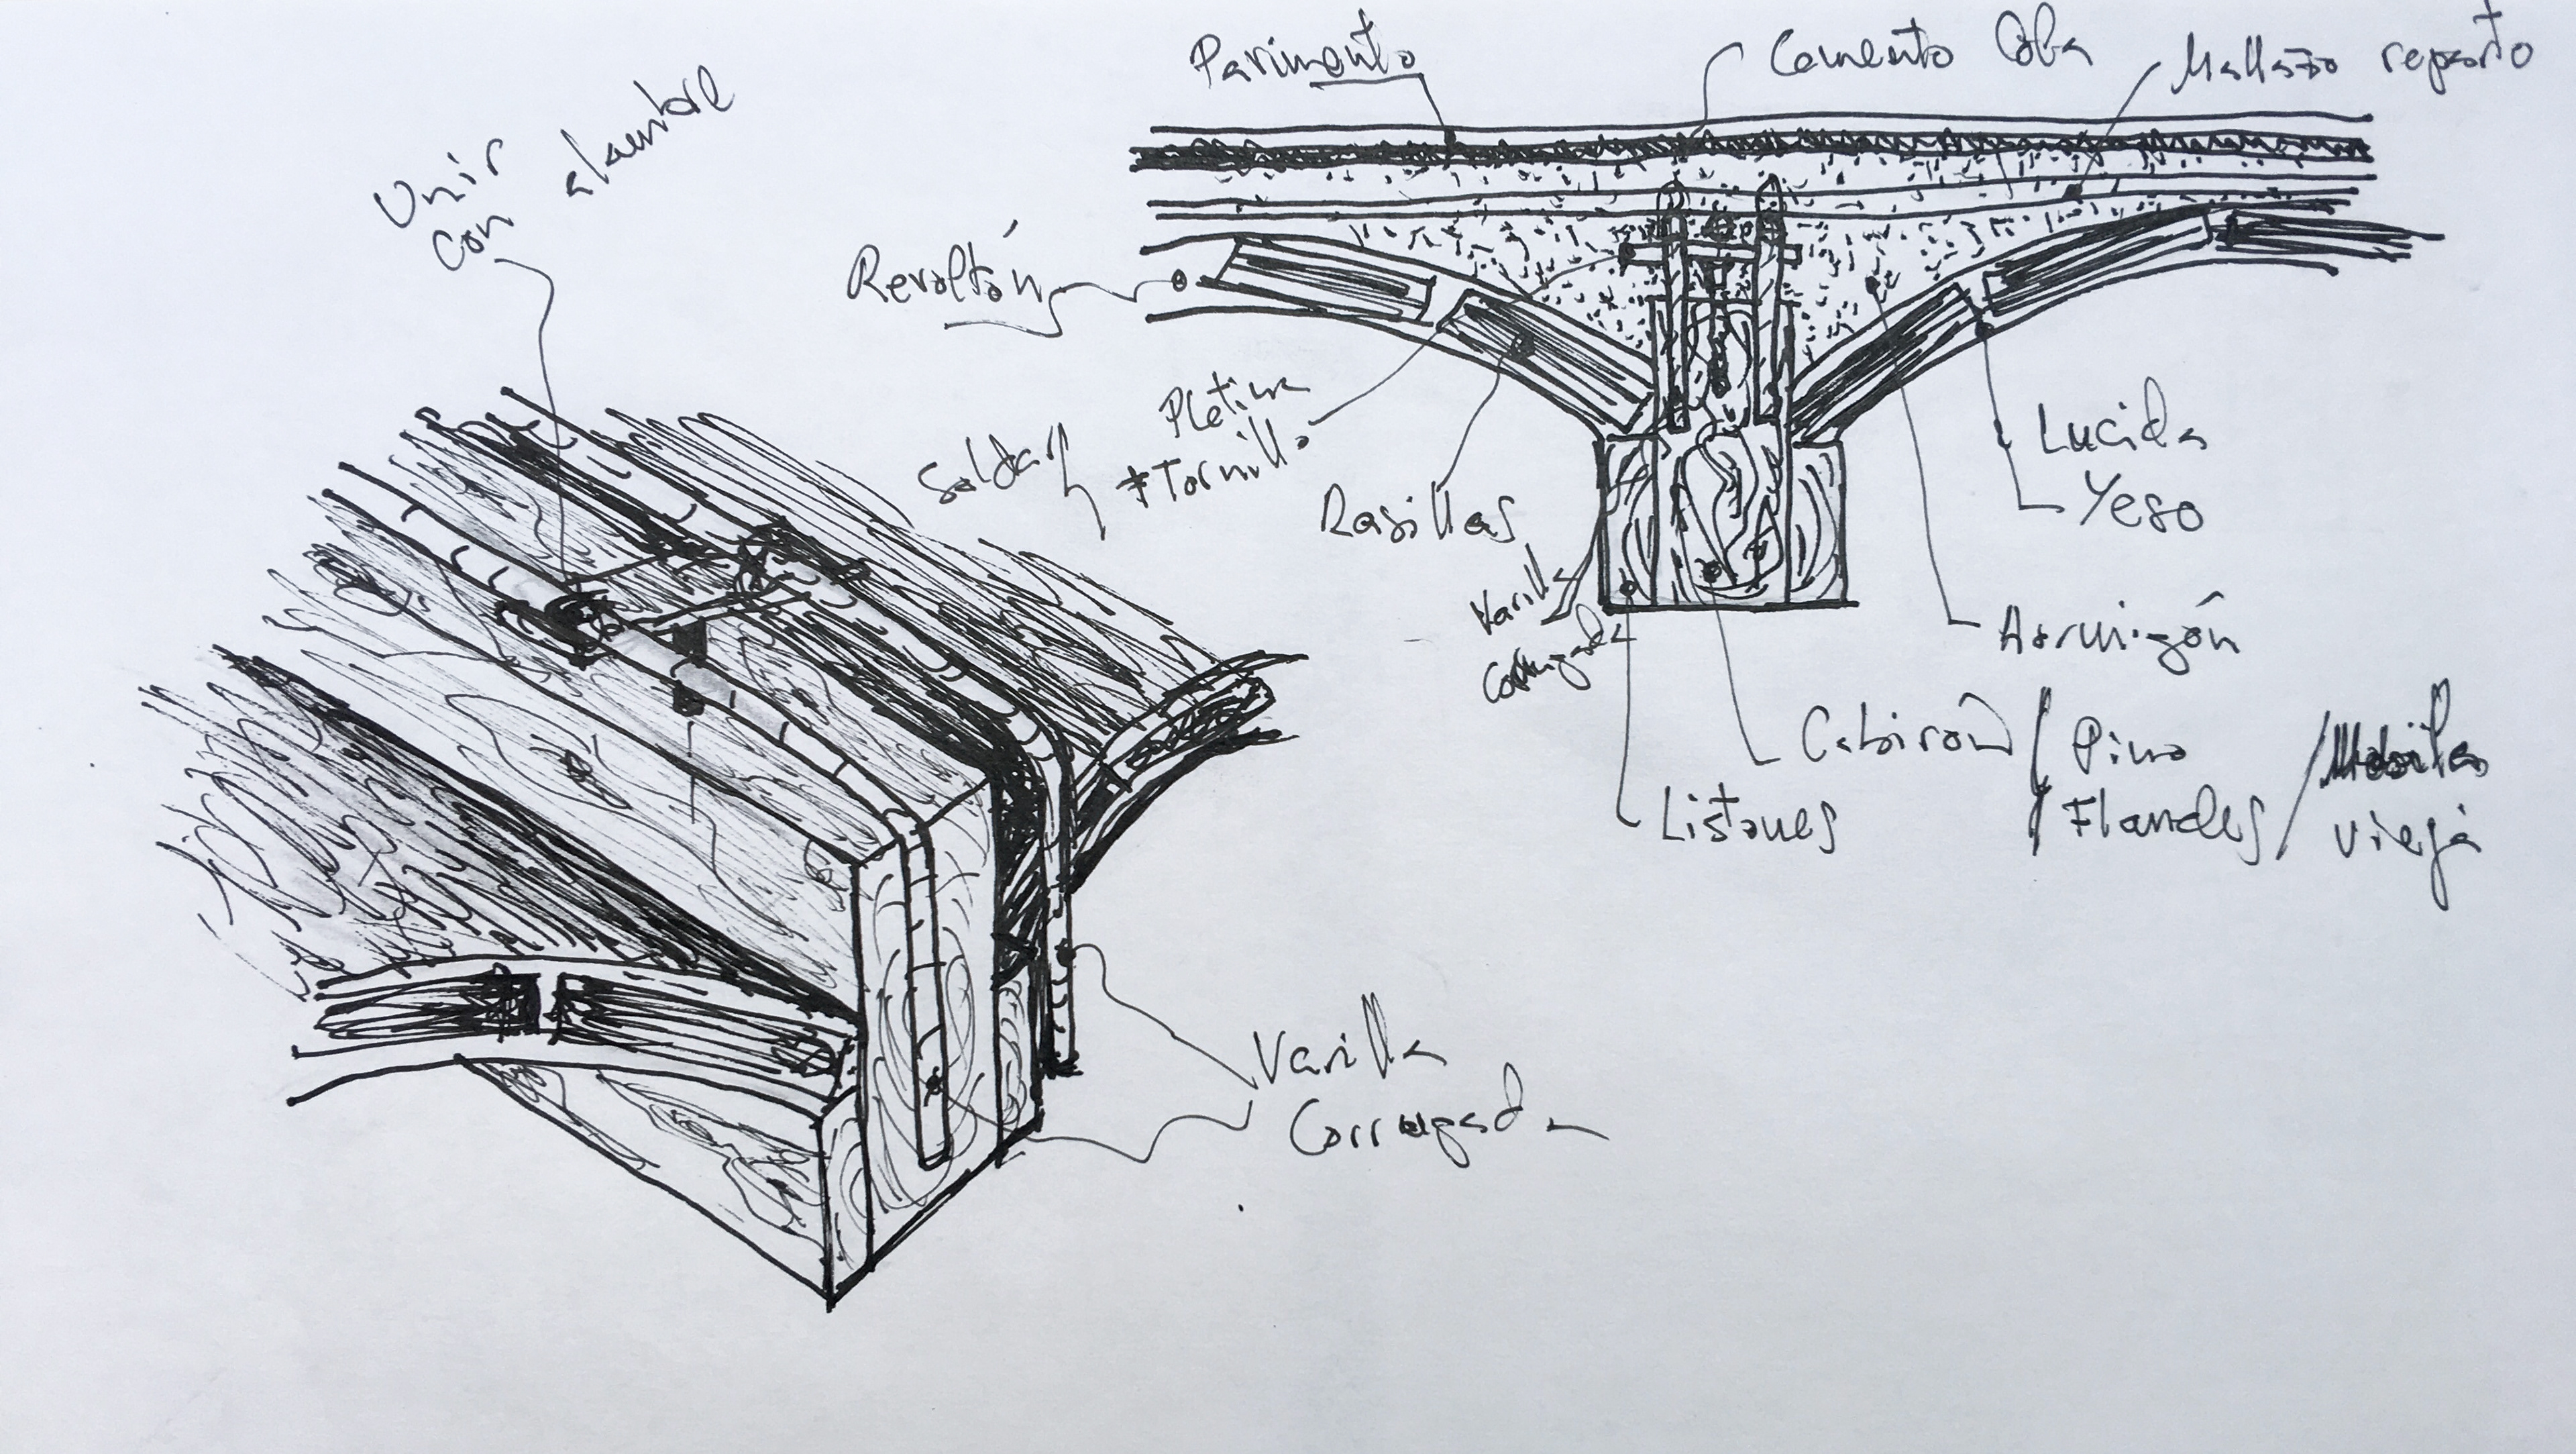 Pavimento
Cemento Cola
Mallazo reparto
Unir
con alambre
Revoltón
Soldar
Pletina
+Tornillo
Rasillas
Lucida
Yeso
Varilla
Corrugada
Hormigón
Cabirón / Pino
Flandes
/ Mobila
vieja
Listones
Varilla
Corrugada